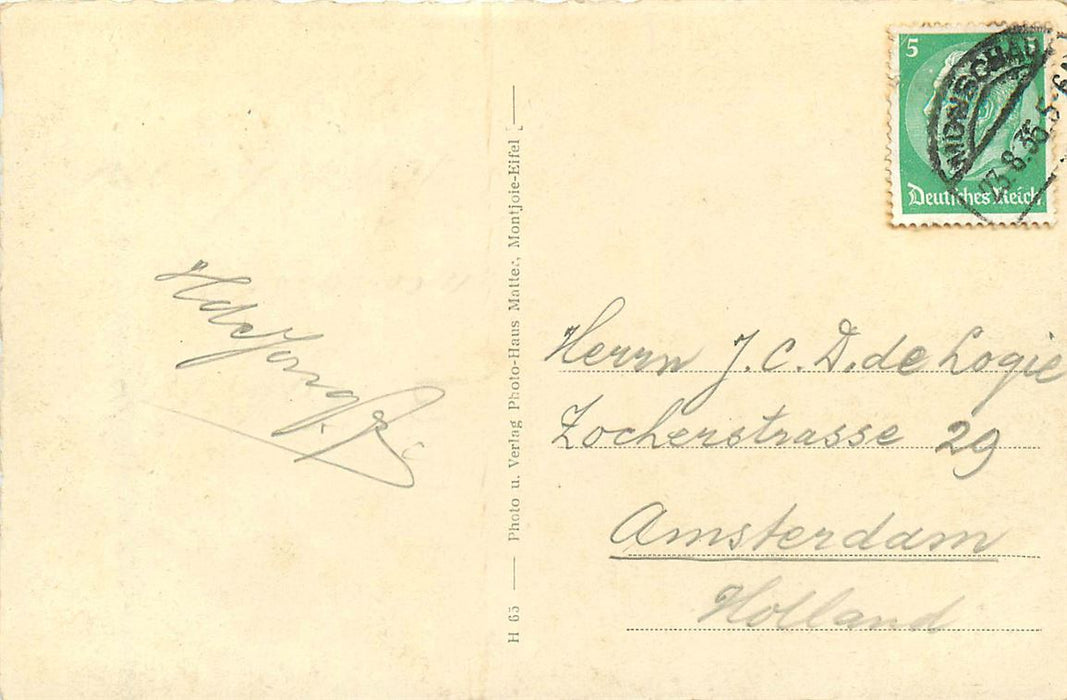 5
5
Deutsches Reich
MONSCHAU
23.8.36.5-6N
Photo u. Verlag Photo-Haus Matter, Montjoie-Eifel
H 65
Herrn J. C. D. de Logie
Zocherstrasse 29
Amsterdam
Holland